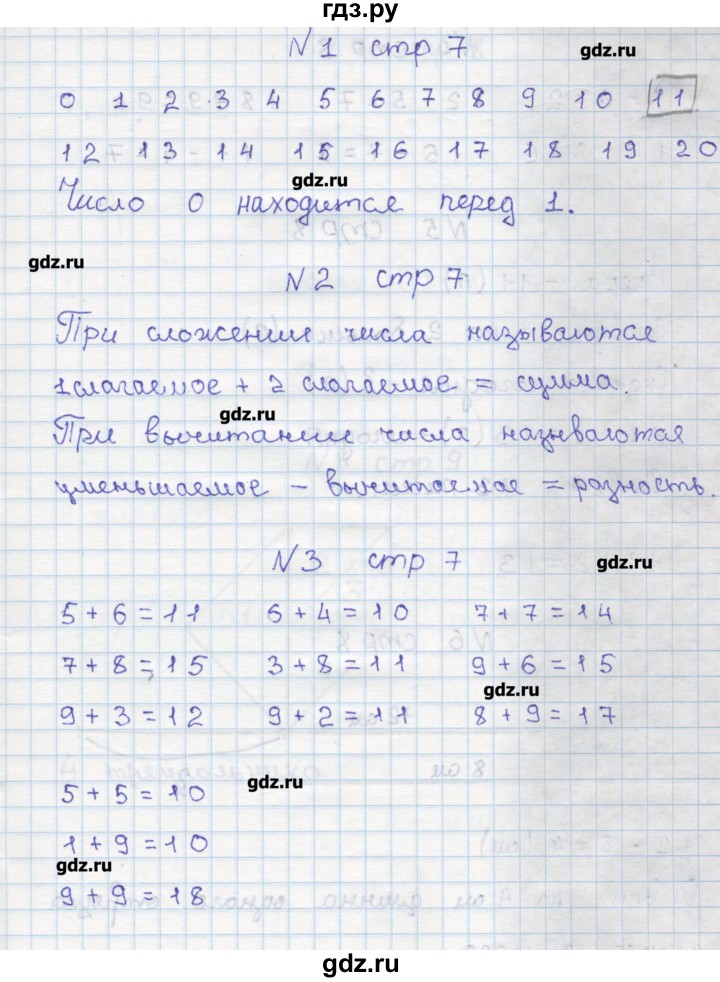 гдз.ру
N1 стр 7
gdz.ru
0 1 2 3 4 5 6 7 8 9 10 11
12 13 14 15 16 17 18 19 20
gdz.ru
Число 0 находится перед 1.
gdz.ru
N2 стр 7
При сложении числа называются
1 слагаемое + 2 слагаемое = сумма.
gdz.ru
При вычитании числа назнваются
уменьшаемое – вычитаемое = разность.
N3 стр 7
gdz.ru
5 + 6 = 11 6 + 4 = 10 7 + 7 = 14
7 + 8 = 15 3 + 8 = 11 9 + 6 = 15
gdz.ru
9 + 3 = 12 9 + 2 = 11 8 + 9 = 17
gdz.ru
5 + 5 = 10
1 + 9 = 10
gdz.ru
9 + 9 = 18
gdz.ru